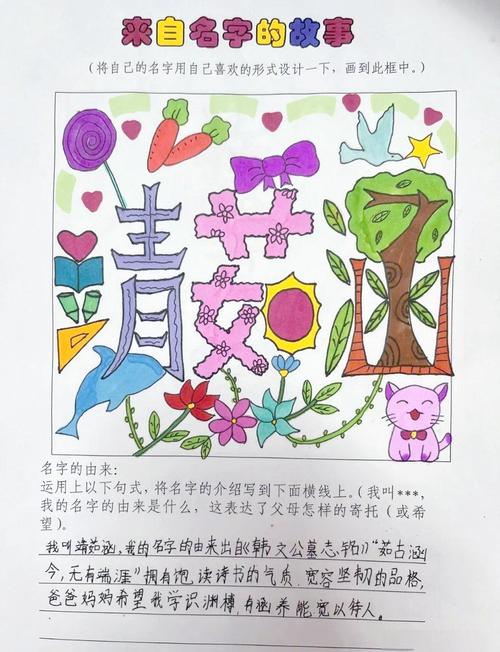 来自名字的故事
(将自己的名字用自己喜欢的形式设计一下，画到此框中。)
靖茹涵
名字的由来:
运用上以下句式，将名字的介绍写到下面横线上。(我叫***,
我的名字的由来是什么，这表达了父母怎样的寄托（或希
望）。
我叫靖茹涵,我的名字的由来出自《韩文公墓志铭》"茹古涵
今,无有端涯"拥有饱读诗书的气质 宽容坚韧的品格,
爸爸妈妈希望我学识渊博,有涵养能宽以待人.